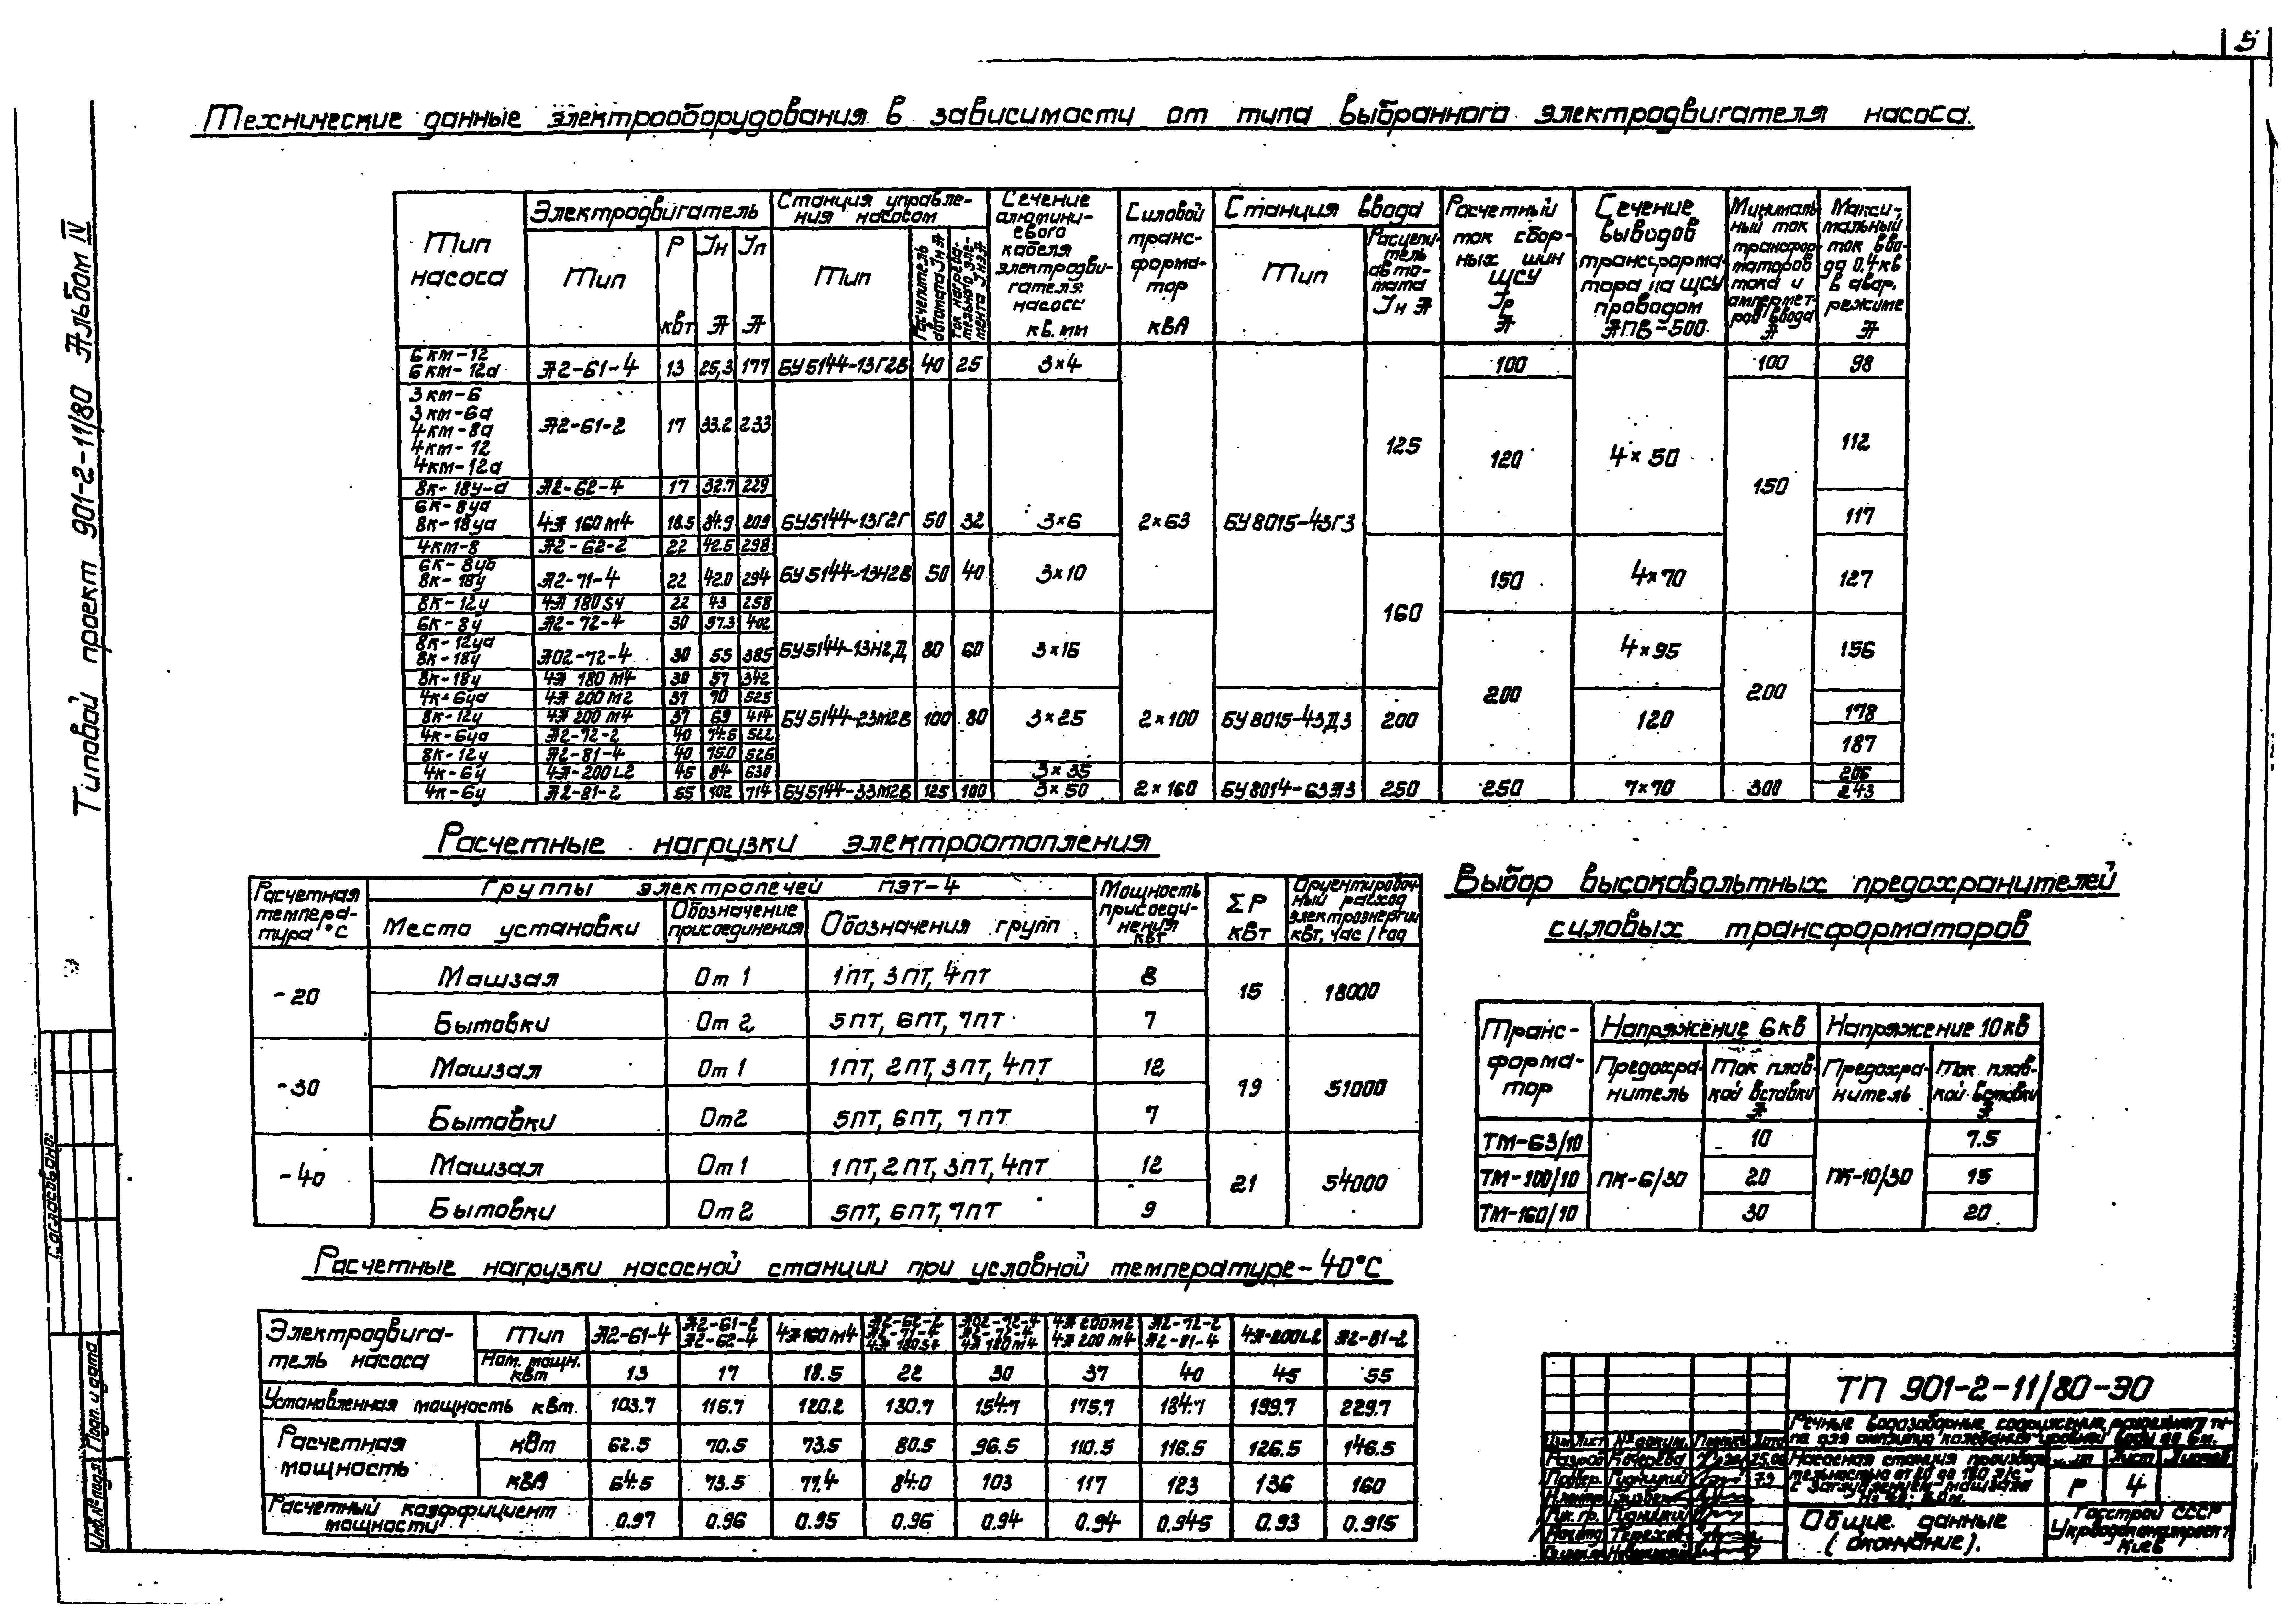 5
Технические данные электрооборудования в зависимости от типа выбранного электродвигателя насоса.
Типовой проект 901-2-11/80 Альбом IV
Тип насоса
Электродвигатель
Тип
Р квт
Iн А
Iп А
Станция управле-
ния насосом
Тип
Расчепитель автомата Iн А
Ток нагрева-
тельного эле-
мента Iнэ А
Сечение
алюмини-
евого
кабеля
электродви-
гателя
насосс
кв. мм
Силовой
транс-
форма-
тор
кВА
Станция ввода
Тип
Расцепи-
тель
авто-
мата
Iн А
Расчетный
ток сбор-
ных шин
ЩСУ
Iр
А
Сечение
выводов
трансформа-
тора на ЩСУ
проводом
АПВ-500
Минималь-
ный ток
трансфор-
маторов
тока и
ампермет-
ров ввода
А
Макси-
мальный
ток вво-
да 0.4кв
в авар.
режиме
А
6 км-12
6 км-12а А2-61-4 13 25,3 177 БУ5144-13Г2В 40 25 3×4 100 100 98
3 км-6
3 км-6а
4км-8а А2-61-2 17 33.2 233
4км-12
4км-12а
125 120 4×50 150 112
8к-18у-а А2-62-4 17 32.7 229
6к-8уа
8к-18уа 4А 160 М4 18.5 34.9 209 БУ5144-13Г2Г 50 32 3×6 2×63 БУ8015-43Г3 117
4км-8 А2-62-2 22 42.5 298
6к-8уб
8к-18у А2-71-4 22 42.0 294 БУ5144-13Н2В 50 40 3×10 150 4×70 127
8к-12у 4А 180S4 22 43 258
160
6к-8у А2-72-4 30 57.3 402
8к-12уа
8к-18у АО2-72-4 30 55 385 БУ5144-13Н2Д 80 60 3×16 4×95 156
8к-18у 4А 180 М4 30 57 342
4к-6уа 4А 200 М2 37 70 525
200 200
8к-12у 4А 200 М4 37 69 414 БУ5144-23М2В 100 80 3×25 2×100 БУ8015-43Д3 200 120 178
4к-6уа А2-72-2 40 74.5 522
8к-12у А2-81-4 40 75.0 526 187
4к-6у 4А-200L2 45 84 630 3×35 206
4к-6у А2-81-2 55 102 714 БУ5144-33М2В 125 100 3×50 2×160 БУ8014-63А3 250 250 7×70 300 243
Расчетные нагрузки электроотопления
Расчетная
темпера-
тура °С
Группы электропечей ПЭТ-4
Место установки
Обозначение
присоединения
Обозначения групп
Мощность
присоеди-
нения
квт
ΣР
квт
Ориентировоч-
ный расход
электроэнергии
квт. час / год
-20 Машзал От 1 1ПТ, 3ПТ, 4ПТ 8 15 18000
Бытовки От 2 5ПТ, 6ПТ, 7ПТ 7
-30 Машзал От 1 1ПТ, 2ПТ, 3ПТ, 4ПТ 12 19 51000
Бытовки От 2 5ПТ, 6ПТ, 7ПТ 7
-40 Машзал От 1 1ПТ, 2ПТ, 3ПТ, 4ПТ 12 21 54000
Бытовки От 2 5ПТ, 6ПТ, 7ПТ 9
Выбор высоковольтных предохранителей
силовых трансформаторов
Транс-
форма-
тор
Напряжение 6кв Напряжение 10кв
Предохра-
нитель
Ток плав-
кой вставки
А
Предохра-
нитель
Ток плав-
кой вставки
А
ТМ-63/10 10 7.5
ТМ-100/10 ПК-6/30 20 ПК-10/30 15
ТМ-160/10 30 20
Расчетные нагрузки насосной станции при условной температуре-40°С
Электродвига-
тель насоса
Тип А2-61-4 А2-61-2 А2-62-4 4А160М4 А2-62-2 А2-71-4 4А 180S4 АО2-72-4 А2-72-4 4А 180М4 4А 200М2 4А 200 М4 А2-72-2 А2-81-4 4А-200L2 А2-81-2
Ном. мощн.
квт 13 17 18.5 22 30 37 40 45 55
Установленная мощность квт. 103.7 116.7 120.2 130.7 154.7 175.7 184.7 199.7 229.7
Расчетная
мощность
кВт 62.5 70.5 73.5 80.5 96.5 110.5 116.5 126.5 146.5
кВА 64.5 73.5 77.4 84.0 103 117 123 136 160
Расчетный коэффициент
мощности 0.97 0.96 0.95 0.96 0.94 0.94 0.945 0.93 0.915
Согласовано:
Инв.№подл. Подп. и дата
ТП 901-2-11/80-ЭО
Речные водозаборные сооружения раздельного ти-
па для амплитуд колебания уровней воды до 6м.
Изм Лист № докум. Подпись Дата
Разраб
Провер.
Н.контр.
Рук. гр.
Насосная станция производи-
тельностью от 20 до 180 л/с
с заглублением машзала
Лист Листов
Р 4
Общие данные
(окончание).
Госстрой СССР
Укрводоканалпроект
Киев